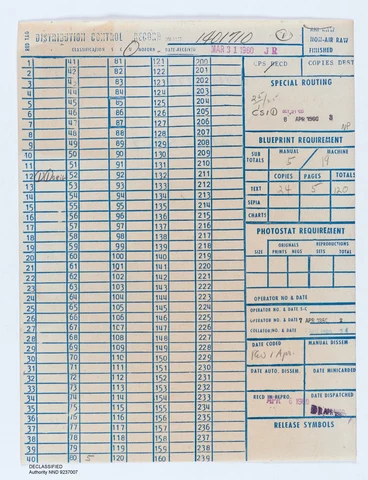 DISTRIBUTION CONTROL RECORD 1901710
NON-AIR RAW
FINISHED
CLASSIFICATION DATE RECEIVED MAR 31 1960 JR
CPS RECD COPIES DEST
SPECIAL ROUTING
APR 1960
BLUEPRINT REQUIREMENT
SUB TOTALS MANUAL 5 MACHINE 19
COPIES PAGES TOTALS
TEXT 24 5 120
SEPIA
CHARTS
PHOTOSTAT REQUIREMENT
SIZE ORIGINALS PRINTS NEGS REPRODUCTIONS SETS TOTAL
OPERATOR NO & DATE
OPERATOR NO. & DATE S.C.
OPERATOR NO. & DATE 7 APR 1960
COLLATOR NO. & DATE
DATE CODED MANUAL DISSEM
1 Apr.
DATE AUTO. DISSEM. DATE MINICARDED
RECD IN REPRO. DATE DISPATCHED
RELEASE SYMBOLS
1 41 81 121 200
2 42 82 122 201
3 43 83 123 202
4 44 84 124 203
5 45 85 125 204
6 46 86 126 205
7 47 87 127 206
8 48 88 128 207
9 49 89 129 208
10 50 90 130 209
11 51 91 131 210
12 52 92 132 211
13 53 93 133 212
14 54 94 134 213
15 55 95 135 214
16 56 96 136 215
17 57 97 137 216
18 58 98 138 217
19 59 99 139 218
20 60 100 140 219
21 61 101 141 220
22 62 102 142 221
23 63 103 143 222
24 64 104 144 223
25 65 105 145 224
26 66 106 146 225
27 67 107 147 226
28 68 108 148 227
29 69 109 149 228
30 70 110 150 229
31 71 111 151 230
32 72 112 152 231
33 73 113 153 232
34 74 114 154 233
35 75 115 155 234
36 76 116 156 235
37 77 117 157 236
38 78 118 158 237
39 79 119 159 238
40 80 5 120 160 239
DECLASSIFIED
Authority NND 9237007